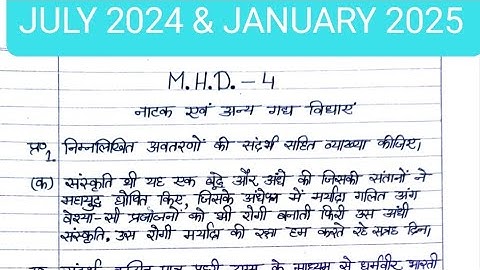 JULY 2024 & JANUARY 2025
M.H.D. - 4
नाटक एवं अन्य गद्य विधाएं
प्र०1. निम्नलिखित अवतरणों की संदर्भ सहित व्याख्या कीजिए।
(क) संस्कृति थी यह एक बूढ़े और अंधे की जिसकी संतानों ने
महायुद्ध घोषित किए, जिसके अंधेपन में मर्यादा गलित अंग
वेश्या-सी प्रजाजनों को भी रोगी बनाती फिरी उस अंधी
संस्कृति, उस रोगी मर्यादा की रक्षा हम करते रहे सत्रह दिन।
के माध्यम से धर्मवीर भारती